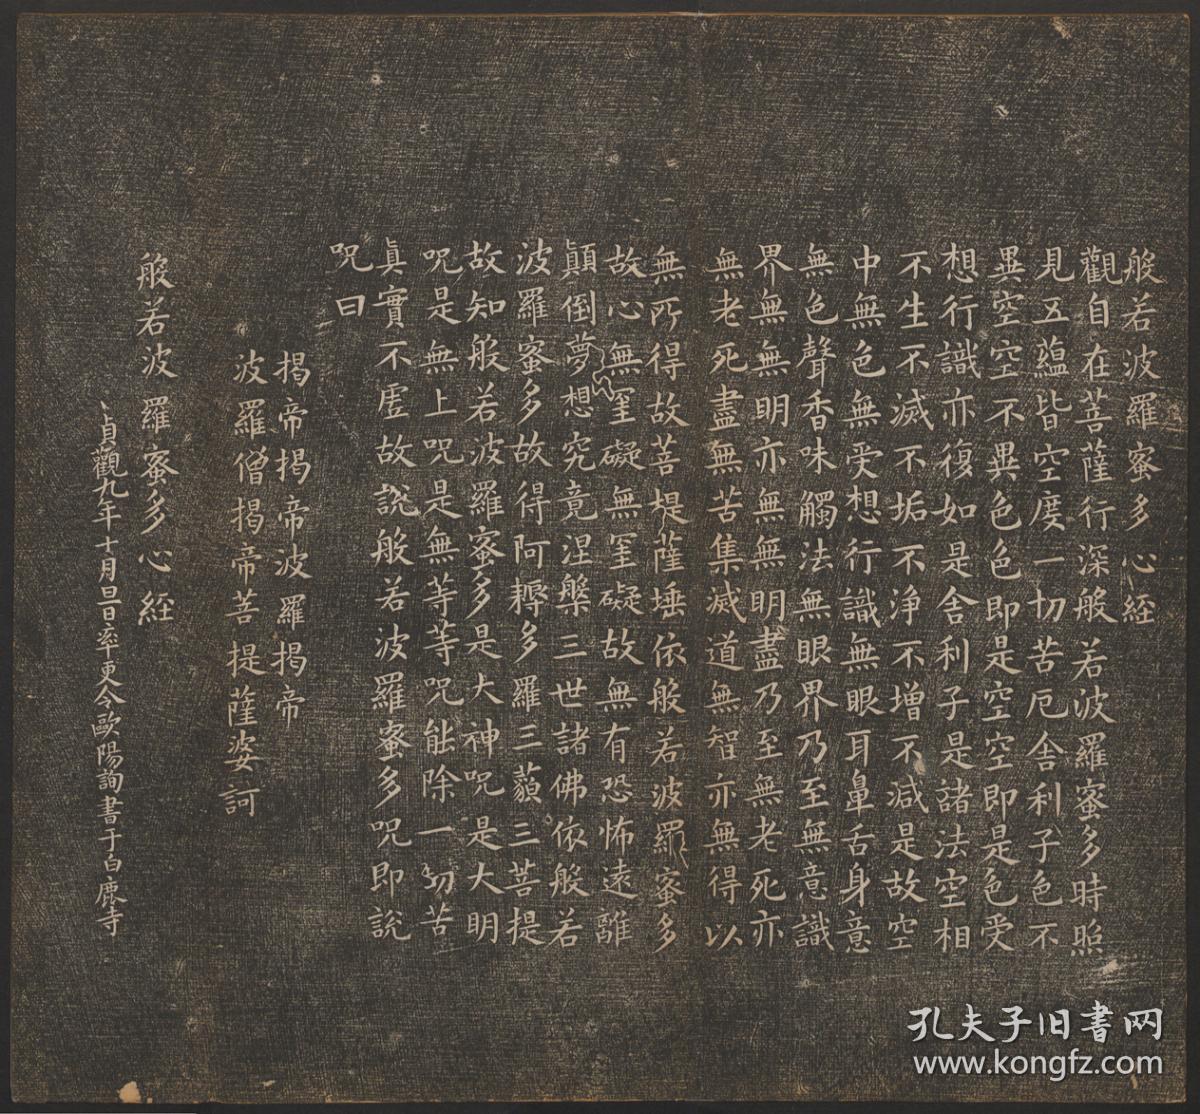 般若波羅蜜多心経
觀自在菩薩行深般若波羅蜜多時照
見五蘊皆空度一切苦厄舍利子色不
異空空不異色色即是空空即是色受
想行識亦復如是舍利子是諸法空相
不生不滅不垢不淨不增不減是故空
中無色無受想行識無眼耳鼻舌身意
無色聲香味觸法無眼界乃至無意識
界無無明亦無無明盡乃至無老死亦
無老死盡無苦集滅道無智亦無得以
無所得故菩提薩埵依般若波羅蜜多
故心無罣礙無罣礙故無有恐怖遠離
顛倒夢想究竟涅槃三世諸佛依般若
波羅蜜多故得阿耨多羅三藐三菩提
故知般若波羅蜜多是大神咒是大明
咒是無上咒是無等等咒能除一切苦
真實不虛故說般若波羅蜜多咒即說
咒曰
揭帝揭帝波羅揭帝
波羅僧揭帝菩提薩婆訶
般若波羅蜜多心経
貞觀九年十月旦日率更令歐陽詢書于白鹿寺
孔夫子旧書网
www.kongfz.com